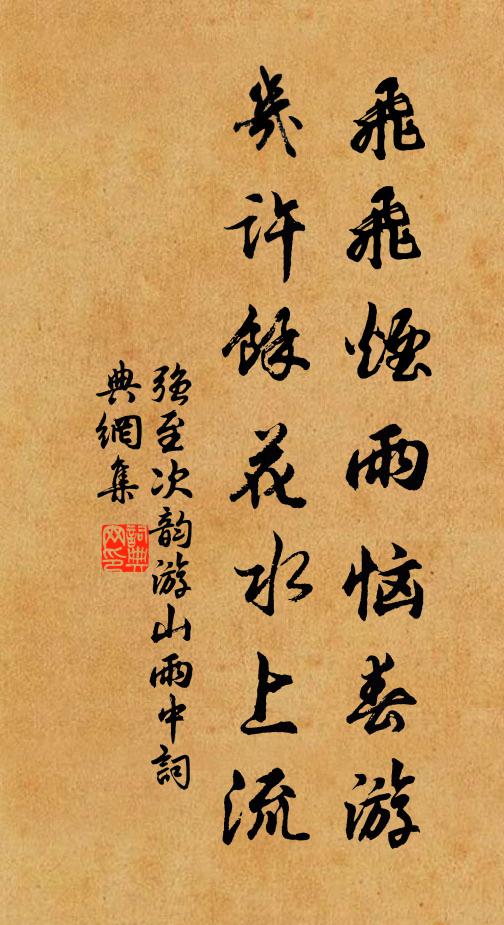 飛飛煙雨惱春游
幾許餘花水上流
強至次韵游山雨中詞
典網集
詞典網印